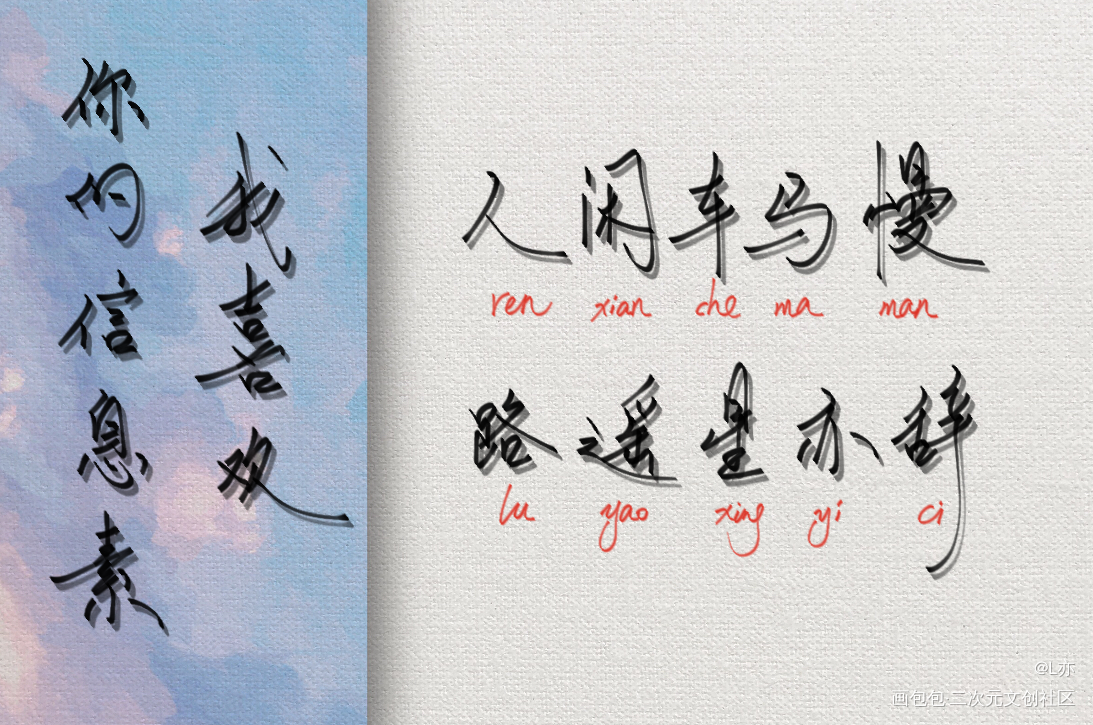 我喜欢
你的信息素
人闲车马慢
ren xian che ma man
路遥星亦辞
lu yao xing yi ci
@L亦
画包包·二次元文创社区